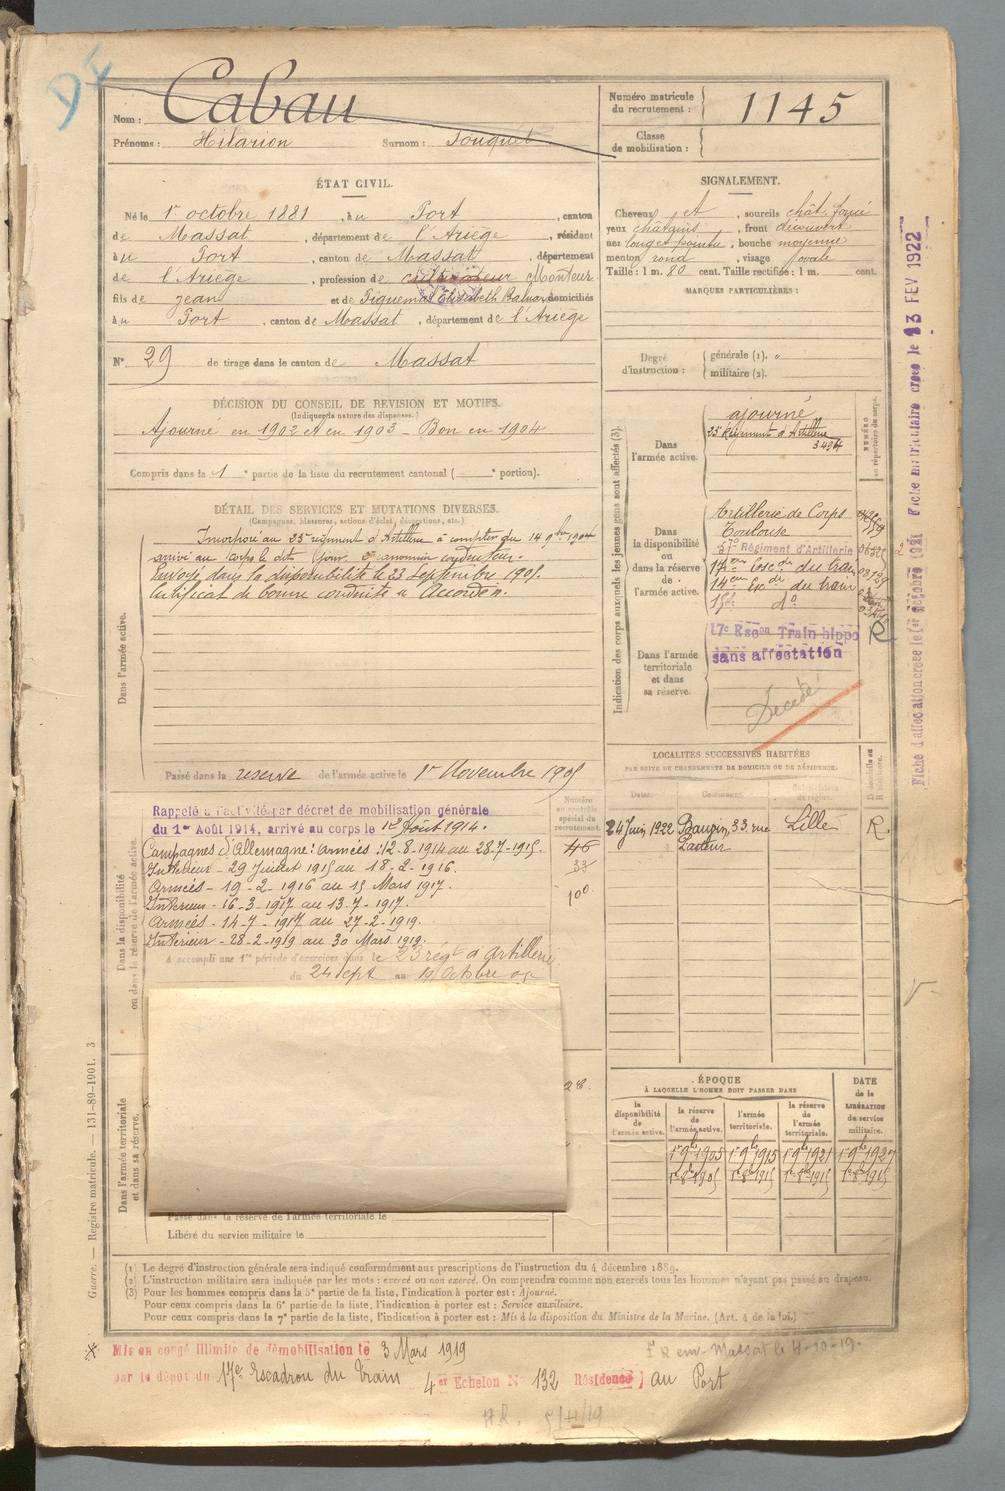 DF
Nom : Cabau
Prénoms : Hilarion Surnom : Touquet
Numéro matricule du recrutement : 1145
Classe de mobilisation :
ÉTAT CIVIL.
Né le 1er octobre 1881, à u Port, canton
de Massat, département de l'Ariège, résidant
à u Port, canton de Massat, département
de l'Ariège, profession de cultivateur Monteur
fils de jean et de Piquemal Elisabeth, domiciliés
à u Port, canton de Massat, département de l'Ariège
N° 29 de tirage dans le canton de Massat
DÉCISION DU CONSEIL DE REVISION ET MOTIFS.
(Indiquer la nature des dispenses.)
Ajourné en 1902 et en 1903 - Bon en 1904
Compris dans la 1e partie de la liste du recrutement cantonal ( e portion).
DÉTAIL DES SERVICES ET MUTATIONS DIVERSES.
(Campagnes, blessures, actions d'éclat, décorations, etc.)
Dans l'armée active.
Incorporé au 23e régiment d'Artillerie à compter du 14 9bre 1904
arrivé au corps le dit jour. 2e canonnier conducteur.
Envoyé dans la disponibilité le 23 Septembre 1905.
Certificat de bonne conduite "Accordé".
Passé dans la reserve de l'armée active le 1er Novembre 1905
Dans la disponibilité ou dans la réserve de l'armée active.
Rappelé à l'activité par décret de mobilisation générale
du 1er Août 1914, arrivé au corps le 12 Août 1914.
Campagnes d'Allemagne : Armées : 12-8-1914 au 28-7-1915.
Intérieur - 29 Juillet 1915 au 18-2-1916.
Armées - 19-2-1916 au 15 Mars 1917.
Intérieur - 16-3-1917 au 13-7-1917.
Armées - 14-7-1917 au 27-2-1919.
Intérieur - 28-2-1919 au 30 Mars 1919.
A accompli une 1re période d'exercices dans le 23 régt d'Artillerie
du 24 sept au
Numéro au contrôle spécial du recrutement.
46
33
100
Dans l'armée territoriale et dans sa réserve.
Passé dans la réserve de l'armée territoriale le
Libéré du service militaire le
SIGNALEMENT.
Cheveux et, sourcils chât. foncé
yeux châtains, front découvert
nez long et pointu, bouche moyenne
menton rond, visage ovale
Taille : 1 m. 80 cent. Taille rectifiée : 1 m. cent.
MARQUES PARTICULIÈRES :
Degré d'instruction : générale (1). "
militaire (2).
Indication des corps auxquels les jeunes gens sont affectés (3).
NUMÉRO au répertoire du corps.
Dans l'armée active.
ajourné
23e Régiment d'Artillerie
3494
Dans la disponibilité ou dans la réserve de l'armée active.
Artillerie de Corps
Toulouse
57e Régiment d'Artillerie
17eme Escon du train
14eme Escon du train
15e do
Dans l'armée territoriale et dans sa réserve.
17e Escon Train hippo
sans affectation
R
Décédé
LOCALITÉS SUCCESSIVES HABITÉES
PAR SUITE DE CHANGEMENTS DE DOMICILE OU DE RÉSIDENCE.
Dates. Communes. Subdivisions de région. D domicile ou R résidence.
24 Juin 1922 Baupin, 33, rue Pasteur Lille R
ÉPOQUE
À LAQUELLE L'HOMME DOIT PASSER DANS
la disponibilité de l'armée active. la réserve de l'armée active. l'armée territoriale. la réserve de l'armée territoriale.
DATE de la LIBÉRATION du service militaire.
1er 9bre 1905 1er 9bre 1915 1er 9bre 1921 1er 9bre 1927
Fiche d'affectation créée le 1er octobre 1921 Fiche matriculaire créée le 13 FEV 1922
Guerre. — Registre matricule. — 131-89-1901. 3
(1) Le degré d'instruction générale sera indiqué conformément aux prescriptions de l'instruction du 4 décembre 1889.
(2) L'instruction militaire sera indiquée par les mots : exercé ou non exercé. On comprendra comme non exercés tous les hommes n'ayant pas passé au drapeau.
(3) Pour les hommes compris dans la 5e partie de la liste, l'indication à porter est : Ajourné.
Pour ceux compris dans la 6e partie de la liste, l'indication à porter est : Service auxiliaire.
Pour ceux compris dans la 7e partie de la liste, l'indication à porter est : Mis à la disposition du Ministre de la Marine. (Art. 4 de la loi.)
Mis en congé illimité de démobilisation le 3 Mars 1919
par le dépôt du 17e Escadron du Train 4er Echelon N° 132 Résidence) au Port